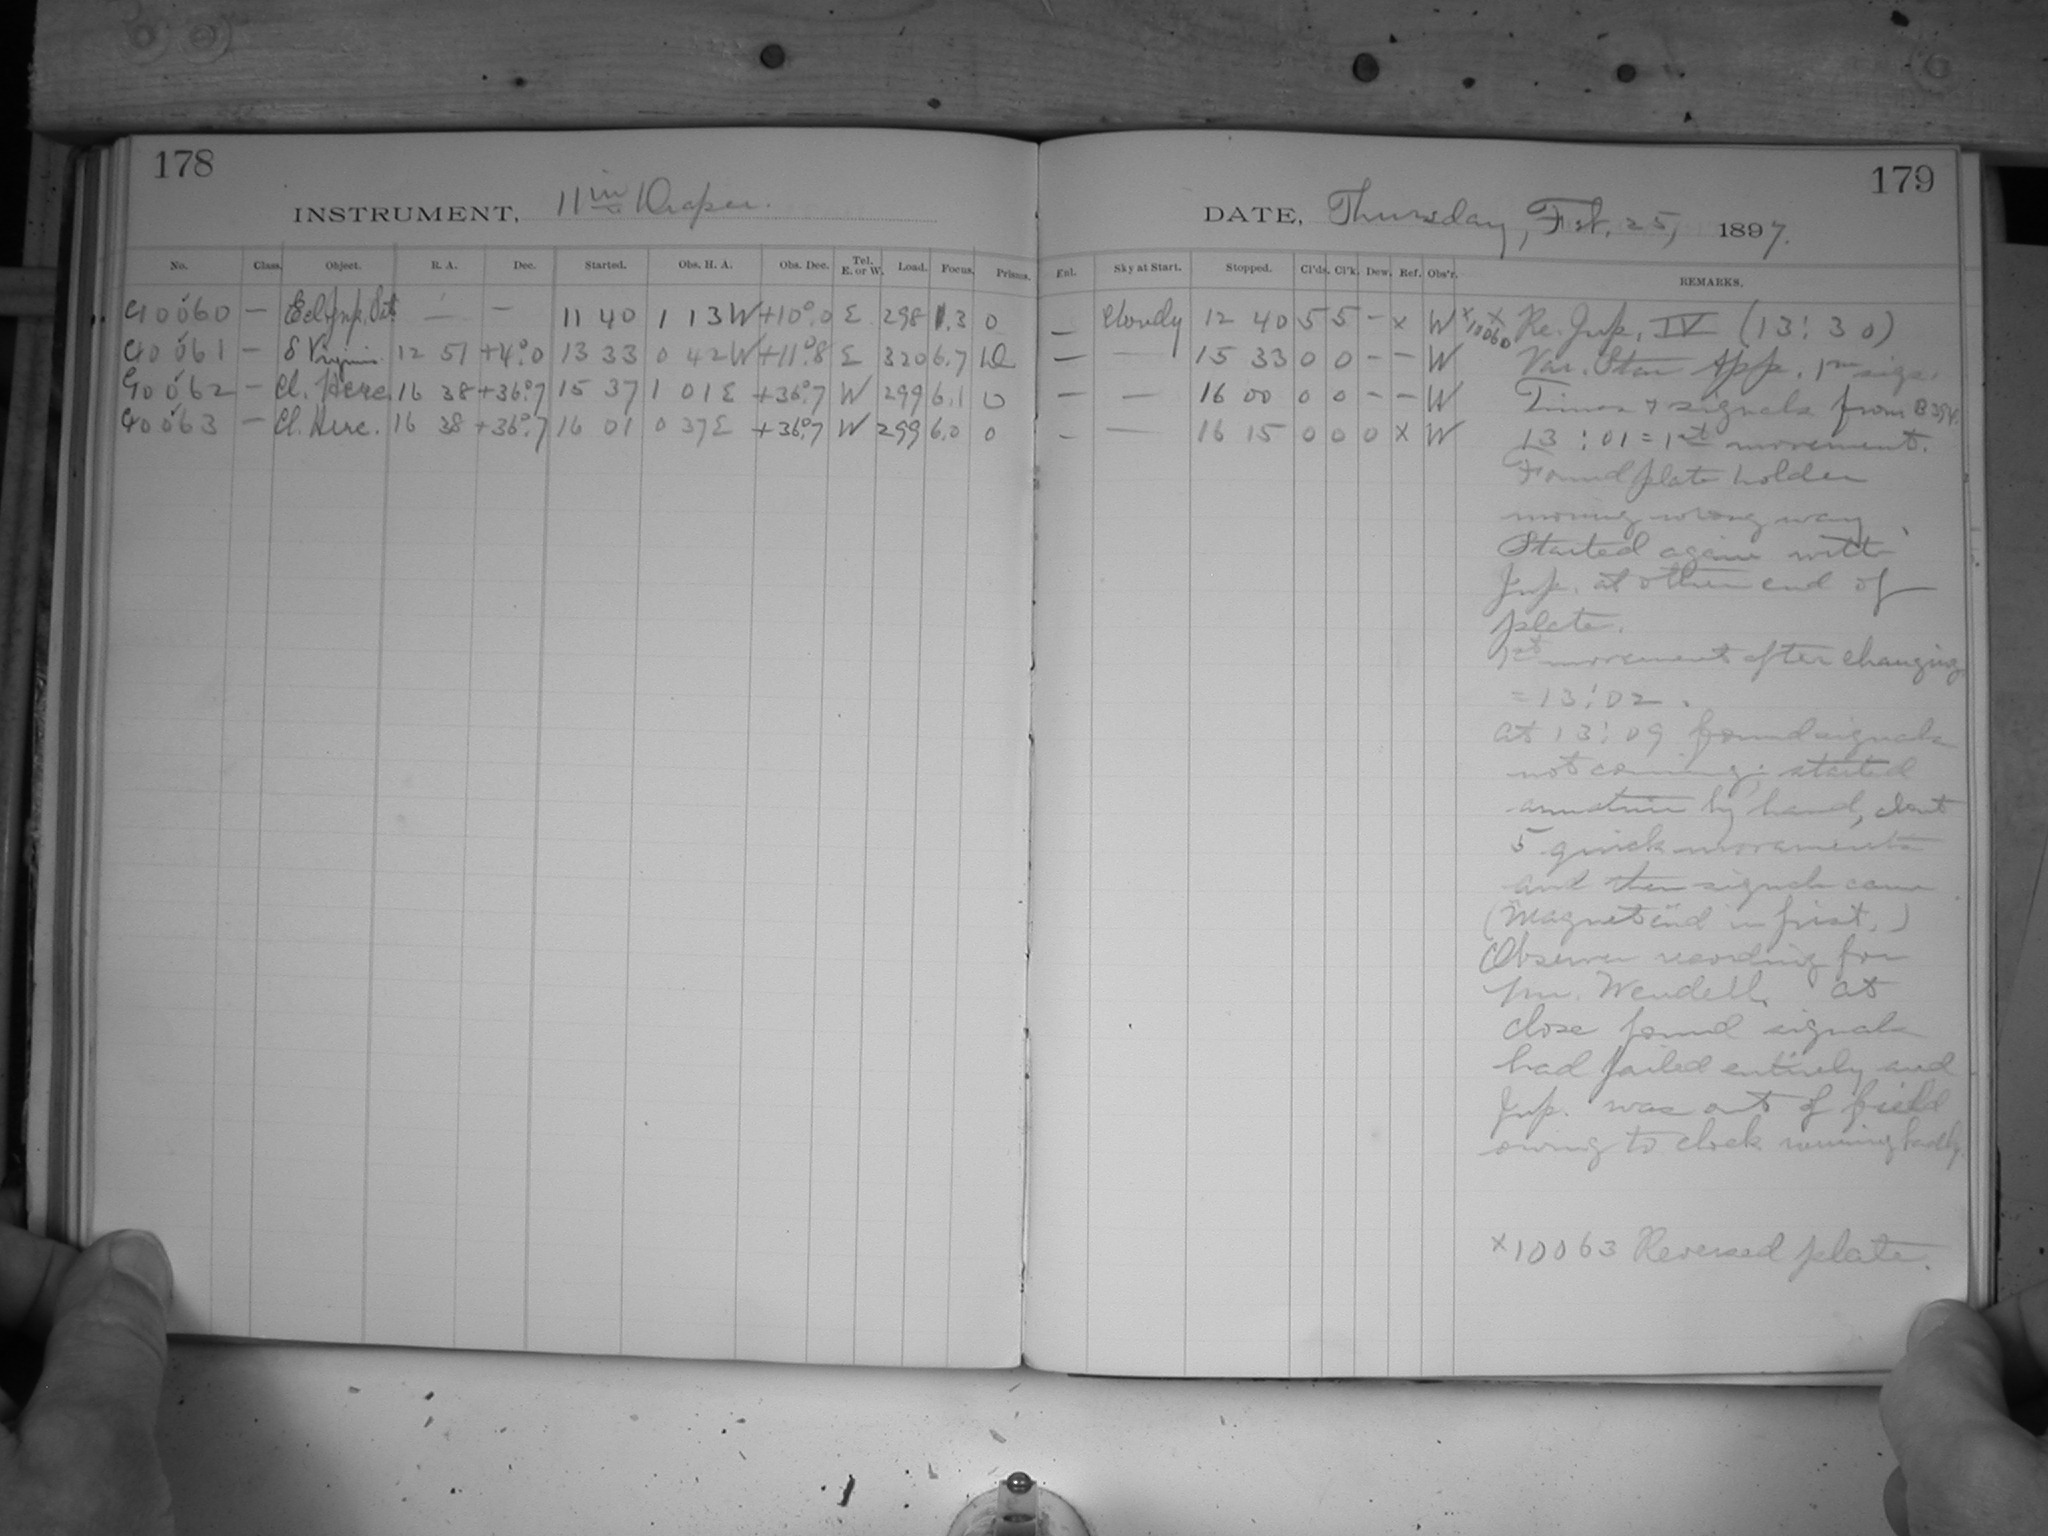 178
INSTRUMENT, 11 in Draper.
No. Class. Object. R. A. Dec. Started. Obs. H. A. Obs. Dec. Tel. E. or W. Load. Focus. Prisms.
10060 — Ecl. Jup. Sat. — — 11 40 1 13 W +10°.0 E 298 0
10061 — δ Virginis 12 51 +4°.0 13 33 0 42 W +11°.8 E 320 6.7
10062 — Cl. Herc. 16 38 +36°.7 15 37 1 01 E +36°.7 W 299 6.1 0
10063 — Cl. Herc. 16 38 +36°.7 16 01 0 37 E +36°.7 W 299 6.0 0
179
DATE, Thursday, Feb. 25, 1897.
Enl. Sky at Start. Stopped. Cl'ds. Cl'k. Dew. Ref. Obs'r. REMARKS.
— Cloudy 12 40 5 5 – x W
— — 15 33 0 0 – – W
— — 16 00 0 0 – – W
– — 16 15 0 0 0 X W
x 10060 Re. Jup. IV (13:30)
Var. Star App. 1m sigs.
Times & signals from
13:01 = 1st movement.
Found plate holder
moving wrong way.
Started again with
Jup. at other end of
plate.
1st movement after changing
= 13:02.
At 13:09 found signals
not coming; started
armature by hand, about
5 quick movements
and then signals came
(Magnet in first.)
Observer recording for
Mr. Wendell. At
close found signals
had failed entirely and
Jup. was out of field
owing to clock running badly.
x 10063 Reversed plate.